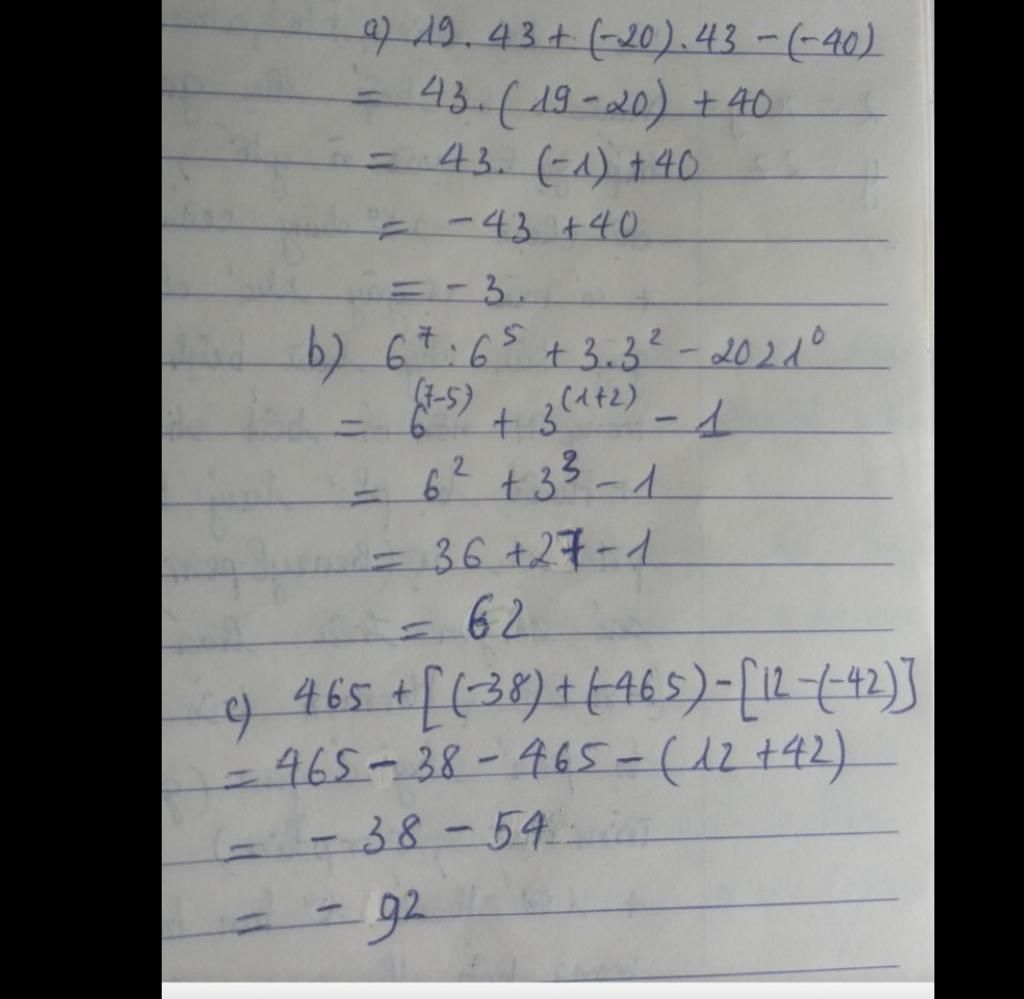 a) 19 . 43 + (-20) . 43 - (-40)
= 43 . (19 - 20) + 40
= 43 . (-1) + 40
= - 43 + 40
= - 3.
b) 6⁷ : 6⁵ + 3.3² - 2021⁰
= 6⁽⁷⁻⁵⁾ + 3⁽¹⁺²⁾ - 1
= 6² + 3³ - 1
= 36 + 27 - 1
= 62
c) 465 + [(-38) + (-465) - [12 - (-42)]
= 465 - 38 - 465 - (12 + 42)
= - 38 - 54
= - 92